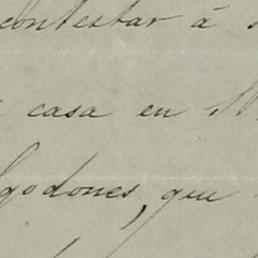 contestar á
casa en
godones, que